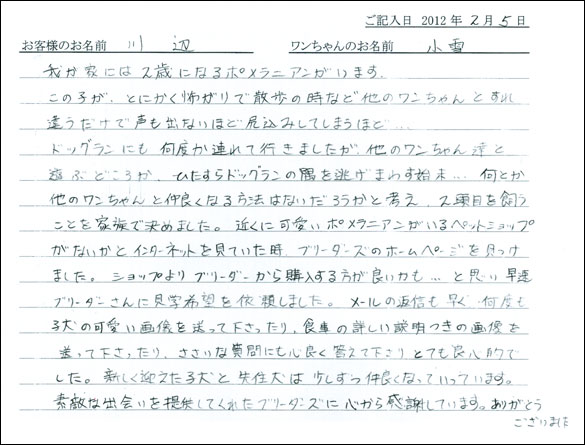 ご記入日 2012年2月5日
お客様のお名前 川辺 ワンちゃんのお名前 小雪
我が家には2歳になるポメラニアンがいます。
この子が、とにかく怖がりで散歩の時など他のワンちゃんとすれ
違うだけで声も出ないほど尻込みしてしまうほど…
ドッグランにも何度か連れて行きましたが、他のワンちゃん達と
遊ぶどころか、ひたすらドッグランの隅を逃げまわす始末… 何とか
他のワンちゃんと仲良くなる方法はないだろうかと考え、2頭目を飼う
ことを家族で決めました。近くに可愛いポメラニアンがいるペットショップ
がないかとインターネットを見ていた時、ブリーダーズのホームページを見つけ
ました。ショップよりブリーダーから購入する方が良いかも…と思い早速
ブリーダーさんに見学希望を依頼しました。メールの返信も早く、何度も
子犬の可愛い画像を送って下さったり、食事の詳しい説明つきの画像を
送って下さったり、ささいな質問にも心良く答えて下さりとても良心的で
した。新しく迎えた子犬と先住犬は少しずつ仲良くなっていっています。
素敵な出会いを提供してくれたブリーダーズに心から感謝しています。ありがとう
ございました